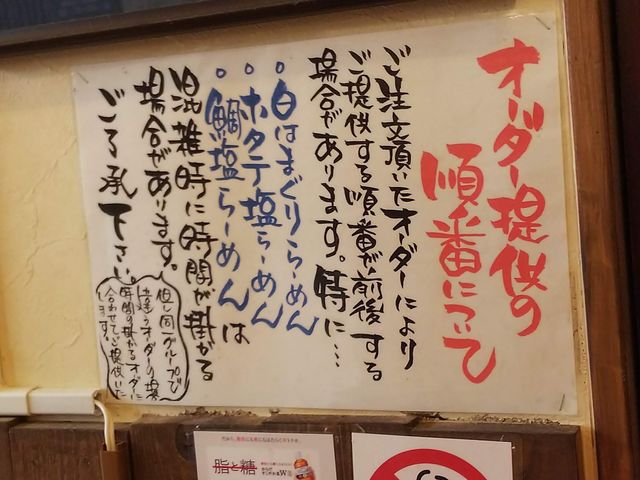 オーダー提供の
順番について
ご注文頂いたオーダーにより
ご提供する順番が前後する
場合があります。特に…
。白はまぐりらーめん
。ホタテ塩らーめん
。鯛塩らーめんは
混雑時に時間が掛かる
場合があります。
ご了承下さい。
但し同一グループで
違うオーダーの場合
時間の掛かるオーダーに
合わせてご提供いた
します。
脂と糖